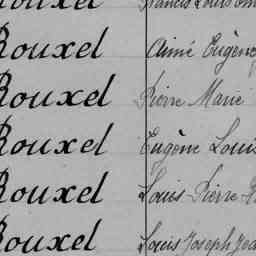 Rouxel Francis Louis
Rouxel Aimé Eugène
Rouxel Pierre Marie
Rouxel Eugène Louis
Rouxel Louis Pierre
Rouxel Louis Joseph Jea